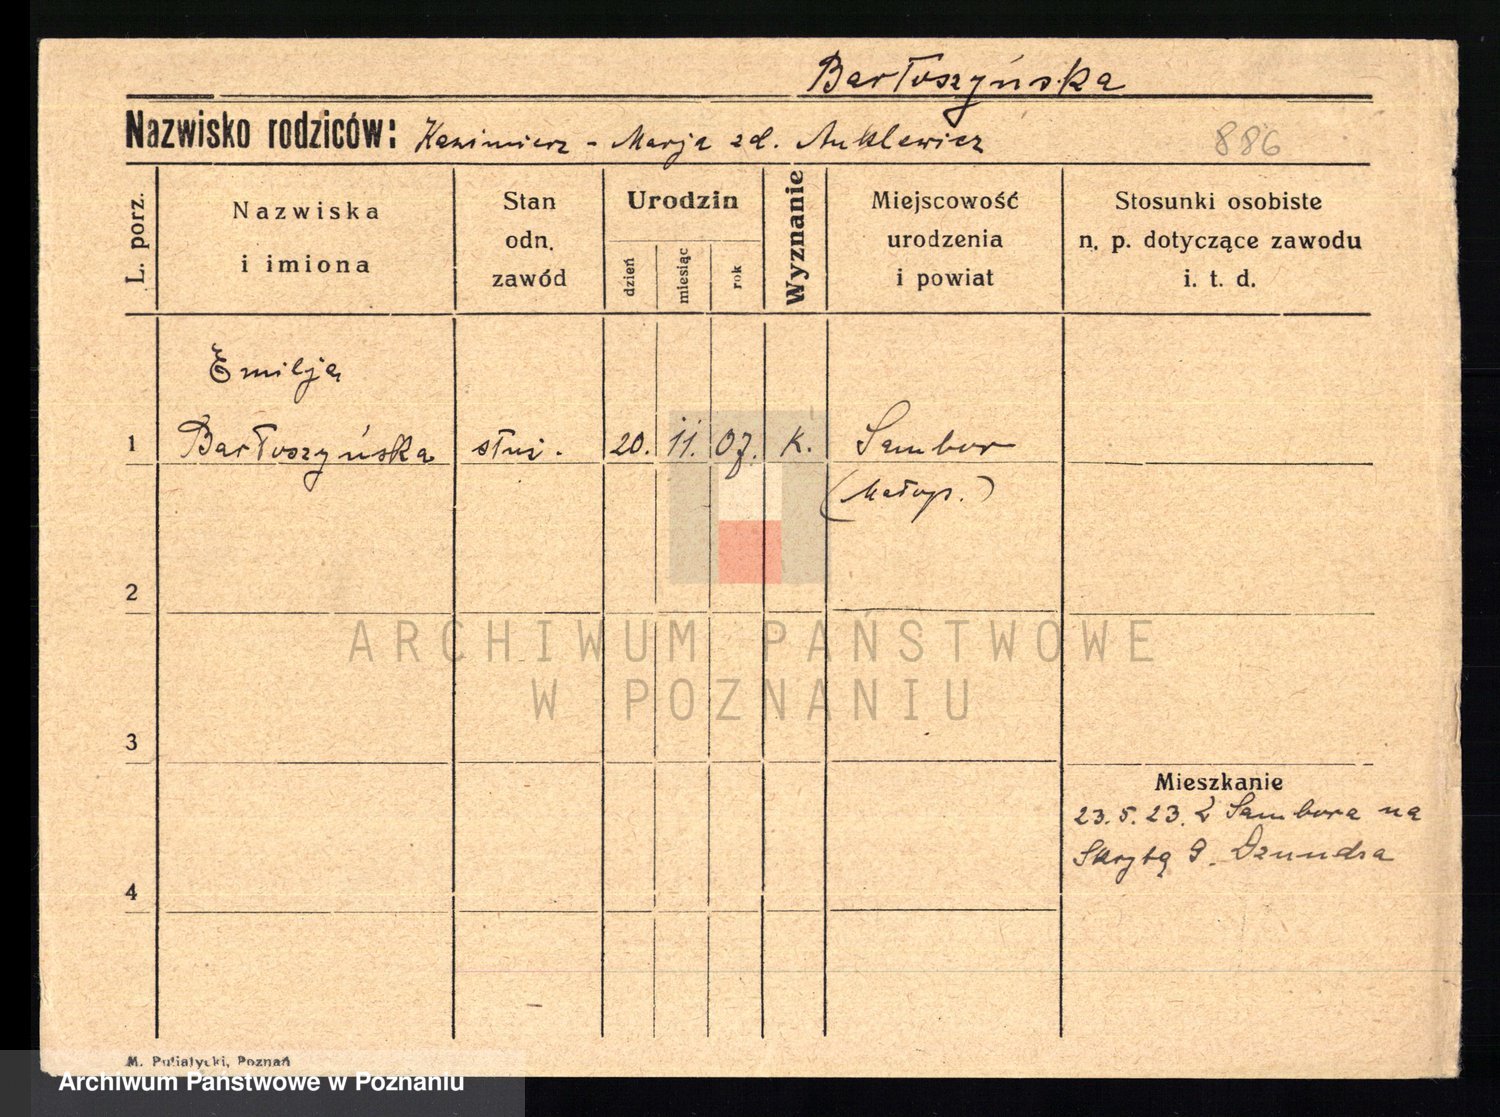 Bartoszyńska
Nazwisko rodziców: Kazimierz - Marja zd. Anklewicz
886
L. porz.
Nazwiska
i imiona
Stan
odn.
zawód
Urodzin
dzień
miesiąc
rok
Wyznanie
Miejscowość
urodzenia
i powiat
Stosunki osobiste
n. p. dotyczące zawodu
i. t. d.
Emilja
1 Bartoszyńska służ. 20. 11. 07. K. Sambor
(Małop.)
2
ARCHIWUM PAŃSTWOWE
W POZNANIU
3
Mieszkanie
23. 5. 23. Z Sambora na
Skrytą 9. Dzundra
4
M. Putiatycki, Poznań
Archiwum Państwowe w Poznaniu